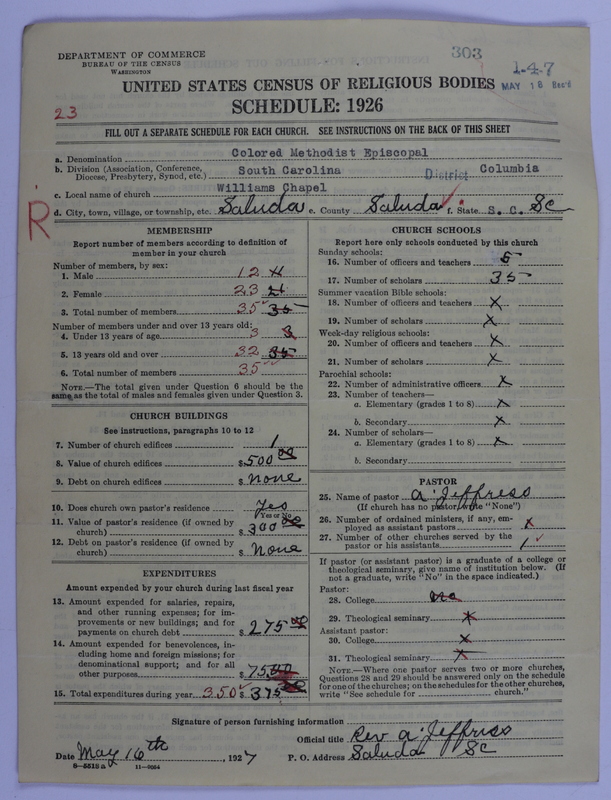 DEPARTMENT OF COMMERCE
BUREAU OF THE CENSUS
WASHINGTON
303
1-4-7
MAY 18 Rec'd
UNITED STATES CENSUS OF RELIGIOUS BODIES
23
SCHEDULE: 1926
FILL OUT A SEPARATE SCHEDULE FOR EACH CHURCH. SEE INSTRUCTIONS ON THE BACK OF THIS SHEET
a. Denomination Colored Methodist Episcopal
b. Division (Association, Conference, Diocese, Presbytery, Synod, etc.) South Carolina District Columbia
c. Local name of church Williams Chapel
R
d. City, town, village, or township, etc. Saluda e. County Saluda f. State S. C. SC
MEMBERSHIP
Report number of members according to definition of
member in your church
Number of members, by sex:
1. Male 12
2. Female 23
3. Total number of members 35 35
Number of members under and over 13 years old:
4. Under 13 years of age 3 3
5. 13 years old and over 32 35
6. Total number of members 35
NOTE.—The total given under Question 6 should be the
same as the total of males and females given under Question 3.
CHURCH BUILDINGS
See instructions, paragraphs 10 to 12
7. Number of church edifices 1
8. Value of church edifices $ 500 00
9. Debt on church edifices $ None
10. Does church own pastor's residence Yes
Yes or No
11. Value of pastor's residence (if owned by
church) $ 300 00
12. Debt on pastor's residence (if owned by
church) $ None
EXPENDITURES
Amount expended by your church during last fiscal year
13. Amount expended for salaries, repairs,
and other running expenses; for im-
provements or new buildings; and for
payments on church debt $ 275 00
14. Amount expended for benevolences, in-
cluding home and foreign missions; for
denominational support; and for all
other purposes $ 75 00
15. Total expenditures during year 350 $ 375 00
CHURCH SCHOOLS
Report here only schools conducted by this church
Sunday schools:
16. Number of officers and teachers 5
17. Number of scholars 35
Summer vacation Bible schools:
18. Number of officers and teachers X
19. Number of scholars X
Week-day religious schools:
20. Number of officers and teachers X
21. Number of scholars X
Parochial schools:
22. Number of administrative officers X
23. Number of teachers—
a. Elementary (grades 1 to 8) X
b. Secondary X
24. Number of scholars—
a. Elementary (grades 1 to 8) X
b. Secondary
PASTOR
25. Name of pastor a Jeffriss
(If church has no pastor, write "None")
26. Number of ordained ministers, if any, em-
ployed as assistant pastors X
27. Number of other churches served by the
pastor or his assistants 1
If pastor (or assistant pastor) is a graduate of a college or
theological seminary, give name of institution below. (If
not a graduate, write "No" in the space indicated.)
Pastor:
28. College no
29. Theological seminary X
Assistant pastor:
30. College X
31. Theological seminary X
NOTE.—Where one pastor serves two or more churches,
Questions 28 and 29 should be answered only on the schedule
for one of the churches; on the schedules for the other churches,
write "See schedule for church."
Signature of person furnishing information
Official title Rev a Jeffriss
Date May 16th, 1927 P. O. Address Saluda SC
8—5515 a 11—9054